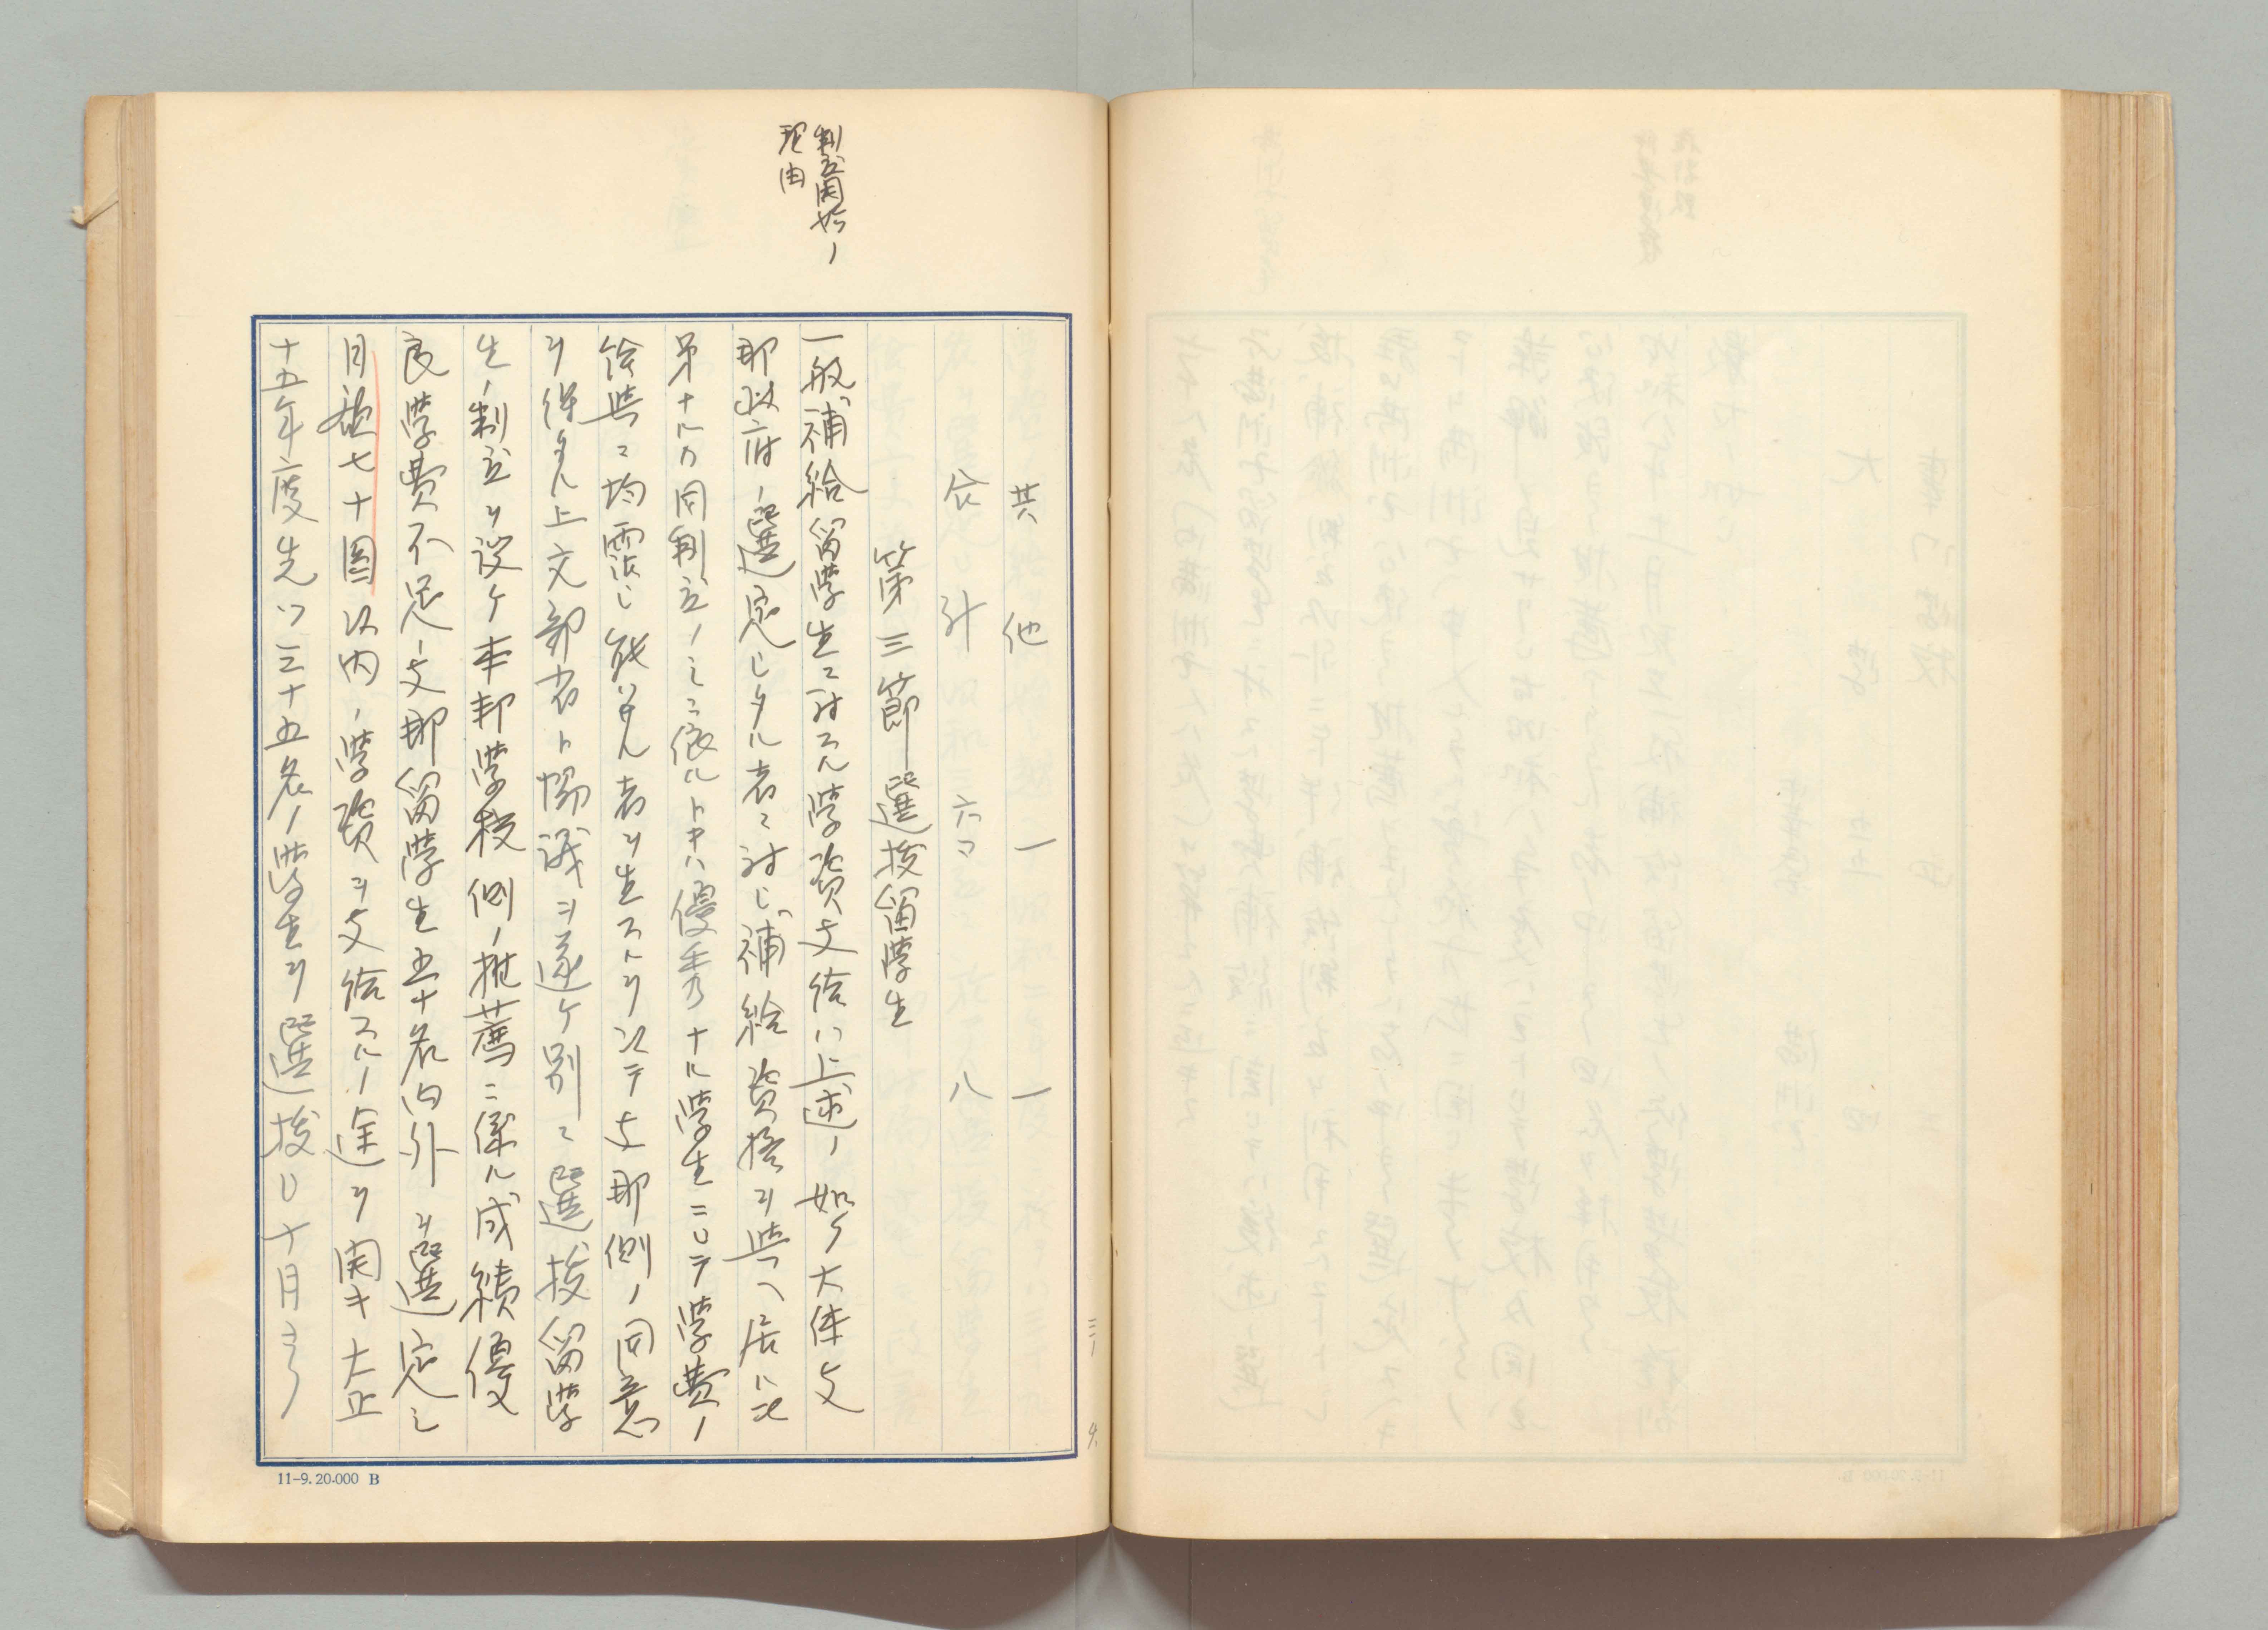 制度開始ノ
理由
其他 一 一
合計 六〇 八
第三節 選抜留学生
一般補給留学生ニ対スル学資支給ハ上述ノ如ク大体支
那政府ノ選定シタル者ニ対シ補給資格ヲ与ヘ居ルモ
第ナルカ同制度ノミニ依ルトキハ優秀ナル学生ニシテ学費ノ
給与ニ均霑シ能ハサル者ヲ生スルヲ以テ支那側ノ同意
ヲ得タル上文部省ト協議ヲ遂ケ別ニ選抜留学
生ノ制度ヲ設ケ本邦学校側ノ推薦ニ係ル成績優
良学費不足ノ支那留学生五十名内外ヲ選定シ
月額七十圓以内ノ学資ヲ支給スルノ途ヲ開キ大正
十五年度先ツ三十五名ノ学生ヲ選抜シ十月ヨリ
11-9. 20.000 B